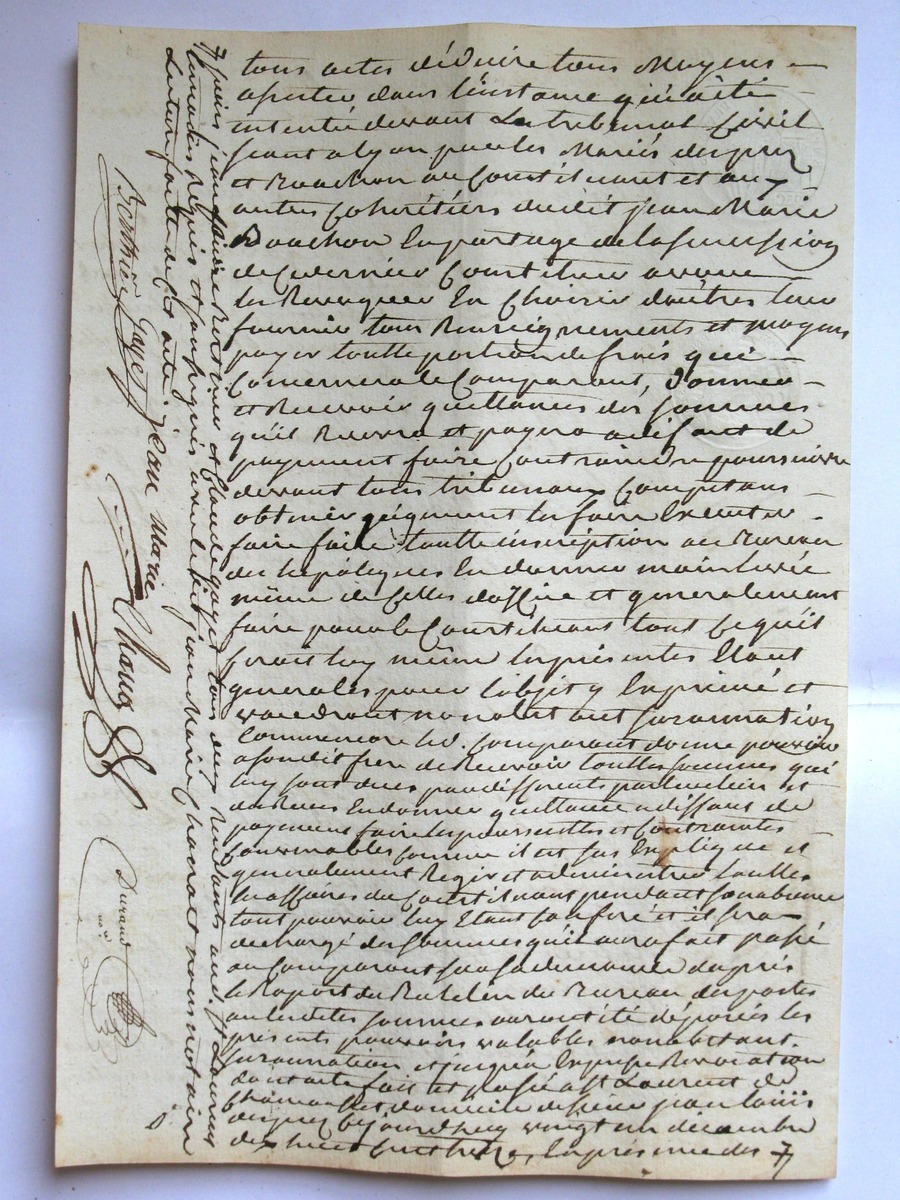 tous actes déduire tous Moyens
aportes dans l'instance qui a été
intenté devant Le tribunal Civil
séant a lyon par les Mariés
et Roachon au Constituant et aux
autres Cohéritiers dudit jean Marie
Roachon En partage de la succession
de Ce dernier Constituer avoué
les Revoquer En Choisir dautres leur
fournir tous Renseignements et moyens
payer toutte portion de frais qui
Concernera le Comparant, Donner
et Recevoir quittances des sommes
quil Recevra et payera a défaut de
payement faire Contraindre poursuivre
devant tous tribunaux Competans
obtenir jugement les faire Executer
faire faire toutte inscription au Bureau
des hepoteques En donner main levée
même de Celles doffice et generalement
faire pour le Constituant tout Ce quil
feroit luy même les présentes Etant
generales pour l'objet y Exprimé et
vaudront nonobstant surannation
Comme encore led. Comparant donne pouvoir
a sondit frere de Recevoir touttes sommes qui
luy sont dues par differents particuliers et
En donner quittance a deffaut de
payement faire les poursuittes et Contraintes
Convenables Comme il est sus Expliqué et
generalement Regir et administrer touttes
les affaires du Constituant pendant son absence
tout pouvoir luy Etant Conferé et il sera
dechargé des sommes quil aura fait passé
au Comparant sur sa demande daprés
le Raport du Bulletin du Bureau des postes
ou lesdites sommes auront été deposées les
présents pouvoirs valables nonobstant
surannation et jusqua Expresse Revocation
dont acte fait et passé a St Laurent de
Chamousset domicile de sieur jean louis
aujourdhuy vingt un decembre
dix huit Cent treize, En présence des
et Claude gayet tous deux
temoins Requis et soussignés avec ledit jean Marie et nous notaire
Lecture faitte de Cet acte.
Berthier
Gayet
jean marie
Durand
no.re